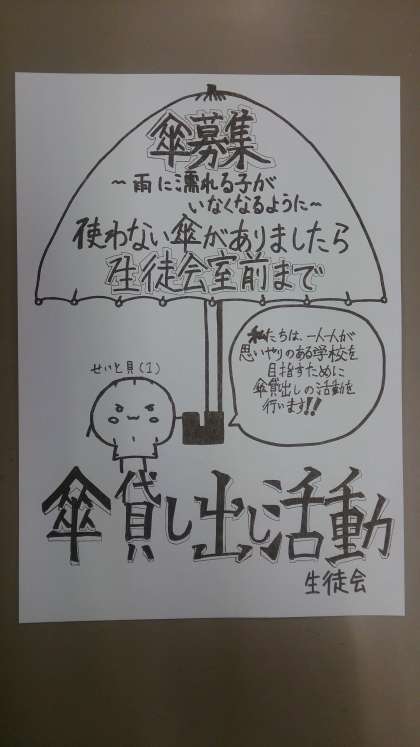 傘募集
～雨に濡れる子が
いなくなるように～
使わない傘がありましたら
生徒会室前まで
私たちは、一人一人が
思いやりのある学校を
目指すために
傘貸出しの活動を
行います!!
せいと員(1)
傘貸し出し活動
生徒会